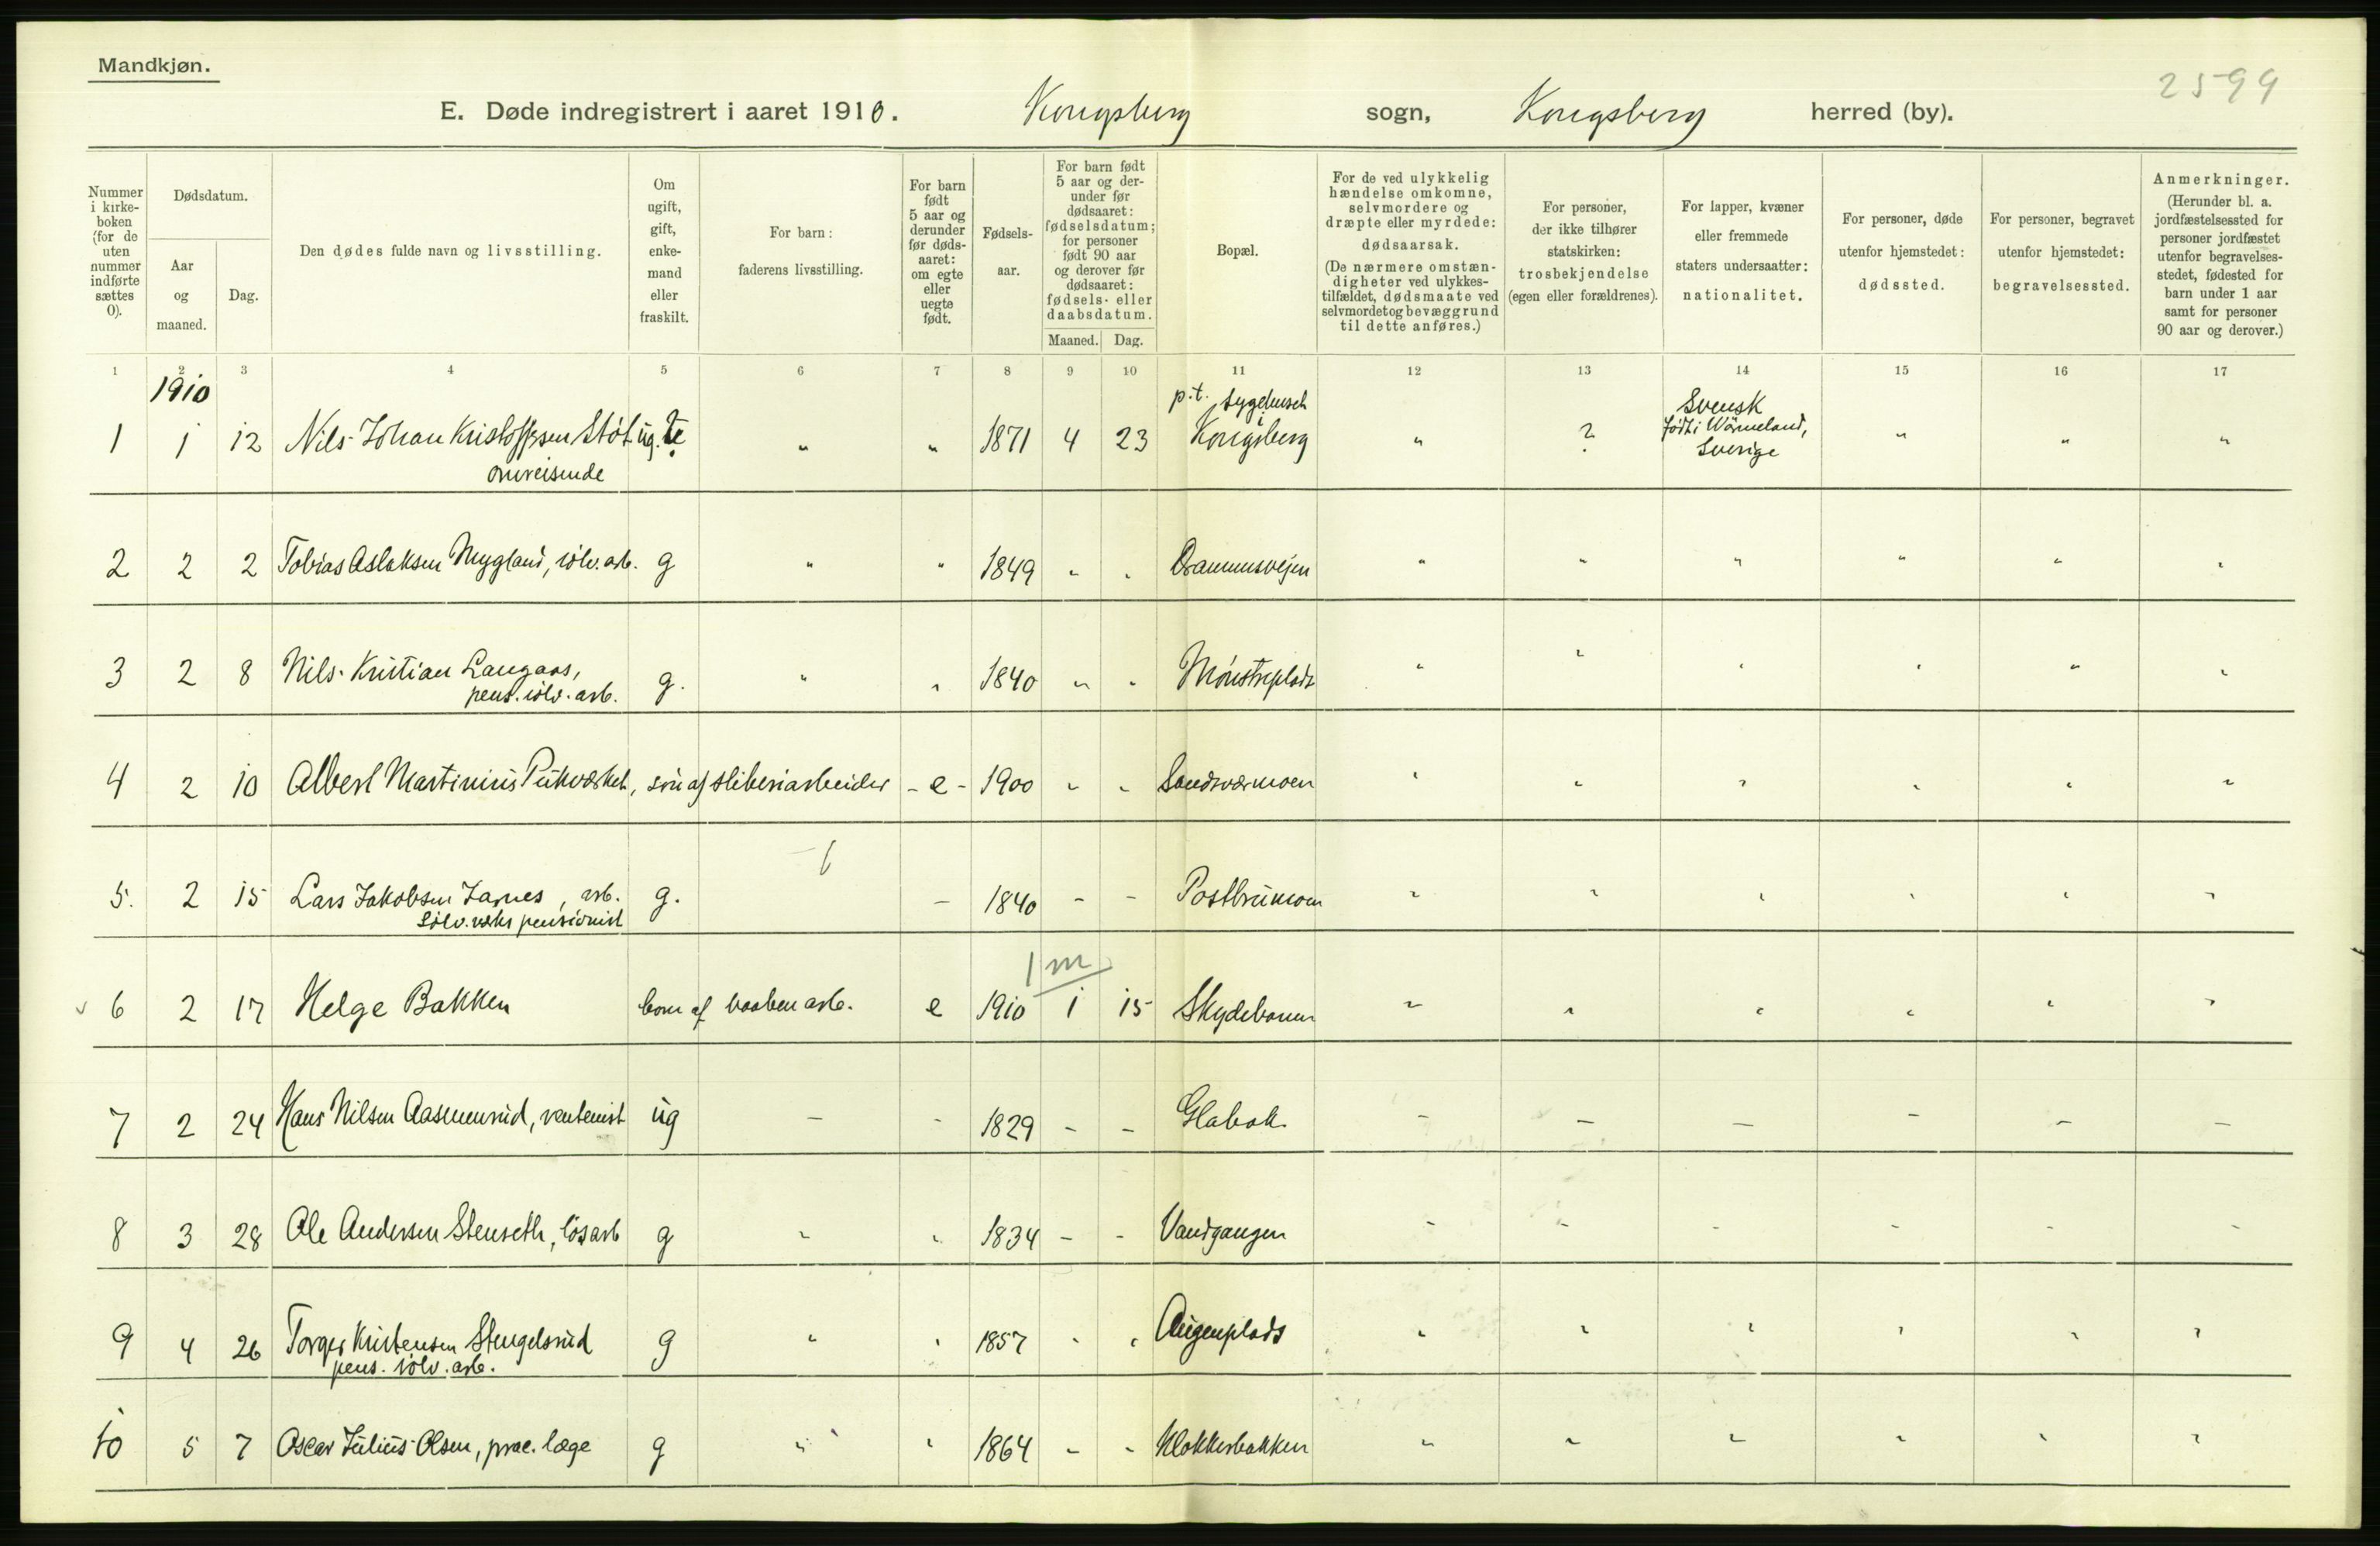 Mandkjøn.
2599
E. Døde indregistrert i aaret 1910. Kongsberg sogn, Kongsberg herred (by).
Nummer i kirkeboken (for de uten nummer indførte sættes 0).
Dødsdatum.
Aar og maaned.
Dag.
Den dødes fulde navn og livsstilling.
Om ugift, gift, enkemand eller fraskilt.
For barn: faderens livsstilling.
For barn født 5 aar og derunder før dødsaaret: om egte eller uegte født.
Fødselsaar.
For barn født 5 aar og derunder før dødsaaret: fødselsdatum; for personer født 90 aar og derover før dødsaaret: fødsels- eller daabsdatum.
Maaned. Dag.
Bopæl.
For de ved ulykkelig hændelse omkomne, selvmordere og dræpte eller myrdede: dødsaarsak. (De nærmere omstændigheter ved ulykkestilfældet, dødsmaate ved selvmordet og bevæggrund til dette anføres.)
For personer, der ikke tilhører statskirken: trosbekjendelse (egen eller forældrenes).
For lapper, kvæner eller fremmede staters undersaatter: nationalitet.
For personer, døde utenfor hjemstedet: dødssted.
For personer, begravet utenfor hjemstedet: begravelsessted.
Anmerkninger. (Herunder bl. a. jordfæstelsessted for personer jordfæstet utenfor begravelsesstedet, fødested for barn under 1 aar samt for personer 90 aar og derover.)
1 2 3 4 5 6 7 8 9 10 11 12 13 14 15 16 17
1910
p.t. sygehuset i
Svensk
1 1 12 Nils Johan Kristoffersen Støt ug. " " 1871 4 23 Kongsberg " ? født i Wärmeland, " " "
omreisende
Sverige
2 2 2 Tobias Aslaksen Mygland, sølv.arb. g " " 1849 " " Drammensvejen " " " " " "
3 2 8 Nils Kristian Langaas, g. " " 1840 " " Mønstreplads " " " " " "
pens. sølv. arb.
4 2 10 Albert Martinius Pukverket, søn af sliberiarbeider - e - 1900 " " Sandsværmoen " " " " " "
5. 2 15 Lars Jakobsen Jarnes, arb. g. - 1840 - - Postbrumoen " " " " " "
sølv.verks pensionist
1 m
6 2 17 Helge Bakken barn af vaaben arb. e 1910 1 15 Skydebanen " " " " " "
7 2 24 Hans Nilsen Aasmunrud, rentenist ug - - 1829 - - Glabak - - - - - -
8 3 28 Ole Andersen Stenseth, løsarb g " " 1834 - - Vandgangen - - - - - -
9 4 26 Torger Kristensen Stengelsrud g " " 1857 " " Augenplads " " " " " "
pens. sølv. arb.
10 5 7 Oscar Julius Olsen, prac. læge g " " 1864 - " Klokkerbakken " " " " " "